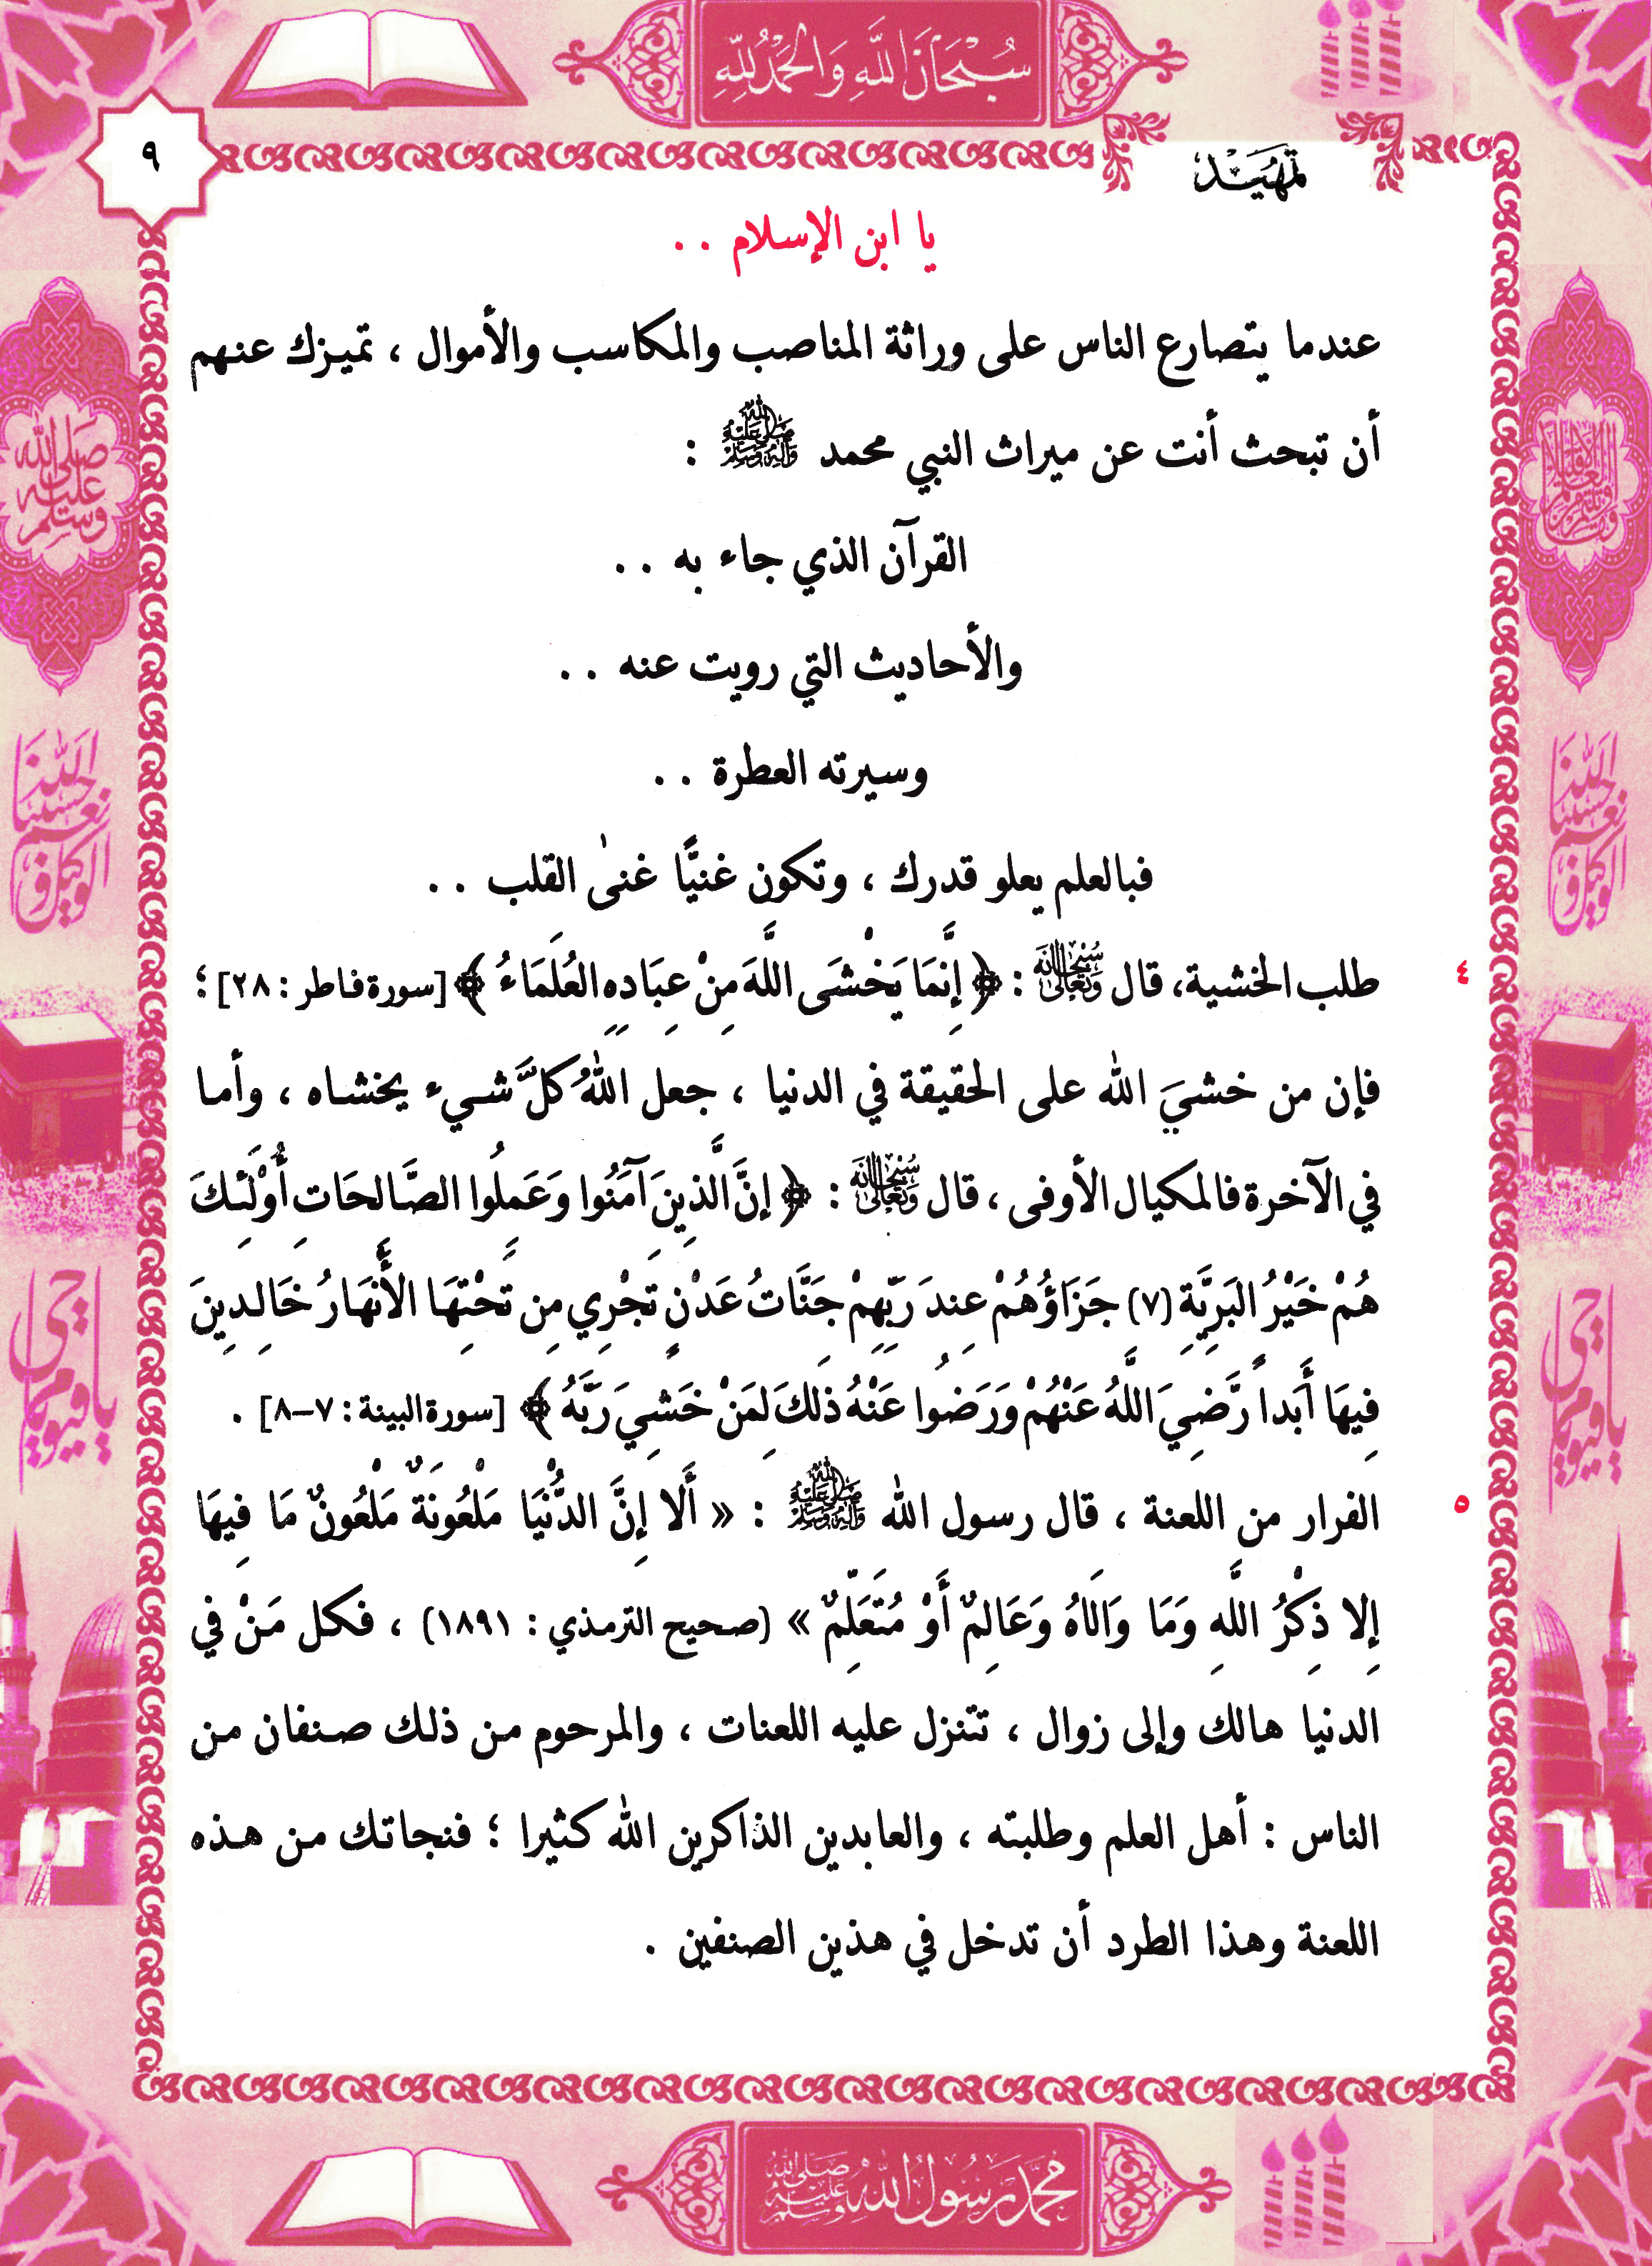 سُبْحَانَ اللَّهِ وَالْحَمْدُ لِلَّهِ
٩
تمهيد
يا ابن الإسلام . .
عندما يتصارع الناس على وراثة المناصب والمكاسب والأموال ، تميزك عنهم
أن تبحث أنت عن ميراث النبي محمد ﷺ :
القرآن الذي جاء به . .
والأحاديث التي رويت عنه . .
وسيرته العطرة . .
فبالعلم يعلو قدرك ، وتكون غنيًّا غنىٰ القلب . .
٤ طلب الخشية، قال سُبْحَانَهُ وَتَعَالَى : ﴿ إِنَّمَا يَخْشَى اللَّهَ مِنْ عِبَادِهِ العُلَمَاءُ ﴾ [سورة فاطر : ٢٨] ؛
فإن من خشيَ الله على الحقيقة في الدنيا ، جعل اللهُ كلَّ شيء يخشاه ، وأما
في الآخرة فالمكيال الأوفى ، قال سُبْحَانَهُ وَتَعَالَى : ﴿ إِنَّ الَّذِينَ آمَنُوا وَعَمِلُوا الصَّالِحَاتِ أُوْلَئِكَ
هُمْ خَيْرُ البَرِيَّةِ (٧) جَزَاؤُهُمْ عِندَ رَبِّهِمْ جَنَّاتُ عَدْنٍ تَجْرِي مِن تَحْتِهَا الأَنْهَارُ خَالِدِينَ
فِيهَا أَبَداً رَّضِيَ اللَّهُ عَنْهُمْ وَرَضُوا عَنْهُ ذَلِكَ لِمَنْ خَشِيَ رَبَّهُ ﴾ [سورة البينة : ٧–٨] .
٥ الفرار من اللعنة ، قال رسول الله ﷺ : « أَلا إِنَّ الدُّنْيَا مَلْعُونَةٌ مَلْعُونٌ مَا فِيهَا
إِلا ذِكْرُ اللَّهِ وَمَا وَالَاهُ وَعَالِمٌ أَوْ مُتَعَلِّمٌ » (صحيح الترمذي : ١٨٩١) ، فكل مَنْ في
الدنيا هالك وإلى زوال ، تتنزل عليه اللعنات ، والمرحوم من ذلك صنفان من
الناس : أهل العلم وطلبته ، والعابدين الذاكرين الله كثيرا ؛ فنجاتك من هذه
اللعنة وهذا الطرد أن تدخل في هذين الصنفين .
صلى الله عليه وسلم
حسبنا الله ونعم الوكيل
حسبنا الله ونعم الوكيل
يا حي يا قيوم
يا حي يا قيوم
محمد رسول الله صلى الله عليه وسلم